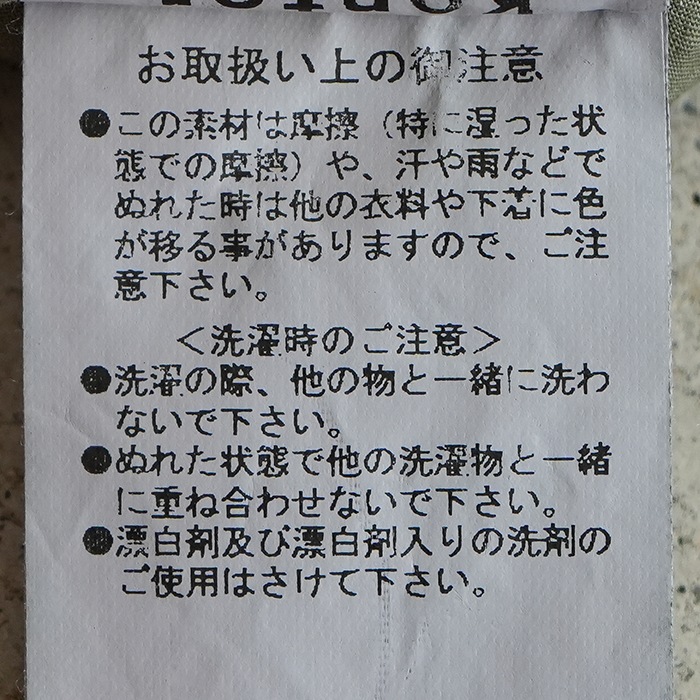 お取扱い上の御注意
●この素材は摩擦（特に湿った状
態での摩擦）や、汗や雨などで
ぬれた時は他の衣料や下着に色
が移る事がありますので、ご注
意下さい。
＜洗濯時のご注意＞
●洗濯の際、他の物と一緒に洗わ
ないで下さい。
●ぬれた状態で他の洗濯物と一緒
に重ね合わせないで下さい。
●漂白剤及び漂白剤入りの洗剤の
ご使用はさけて下さい。